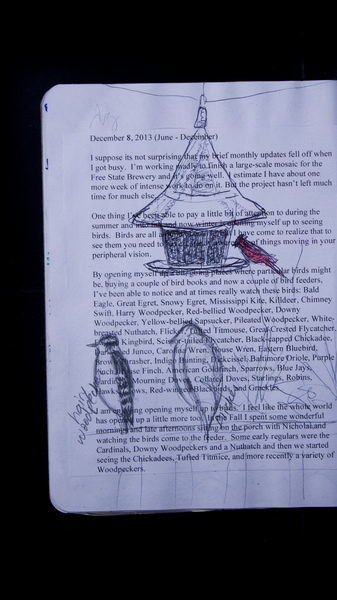 December 8, 2013 (June - December)
I suppose its not surprising that my brief monthly updates fell off when
I got busy. I'm working madly to finish a large-scale mosaic for the
Free State Brewery and it's going well. I estimate I have about one
more week of intense work to do on it. But the project hasn't left much
time for much else.
One thing I've been able to pay a little bit of attention to during the
summer and into fall and now winter is opening myself up to seeing
birds. Birds are all I have come to realize that to
see them you need to of things moving in your
peripheral vision.
By opening myself up places where particular birds might
be, buying a couple of bird books and now a couple of bird feeders,
I've been able to notice and at times really watch these birds: Bald
Eagle, Great Egret, Snowy Egret, Mississippi Kite, Killdeer, Chimney
Swift, Harry Woodpecker, Red-bellied Woodpecker, Downy
Woodpecker, Yellow-bellied Sapsucker, Pileated Woodpecker, White-
breasted Nuthatch, Flicker, Tufted Titmouse, Great Crested Flycatcher,
Kingbird, Scissor-tailed Flycatcher, Black-capped Chickadee,
Junco, Carolina Wren, Wren, Eastern Bluebird,
Brown Thrasher, Indigo Bunting, Dickcissel, Baltimore Oriole, Purple
Finch, Finch, American Goldfinch, Sparrows, Blue Jays,
Cardinals, Mourning Doves, Collared Doves, Starlings, Robins,
Hawks, Red-winged Blackbirds, and Grackles.
I am enjoying opening myself up to birds. I feel like the whole world
has opened up a little more too. In the Fall I spent some wonderful
mornings and late afternoons sitting on the porch with Nicholai and
watching the birds come to the feeder. Some early regulars were the
Cardinals, Downy Woodpeckers and a Nuthatch and then we started
seeing the Chickadees, Tufted Titmice, and more recently a variety of
Woodpeckers.